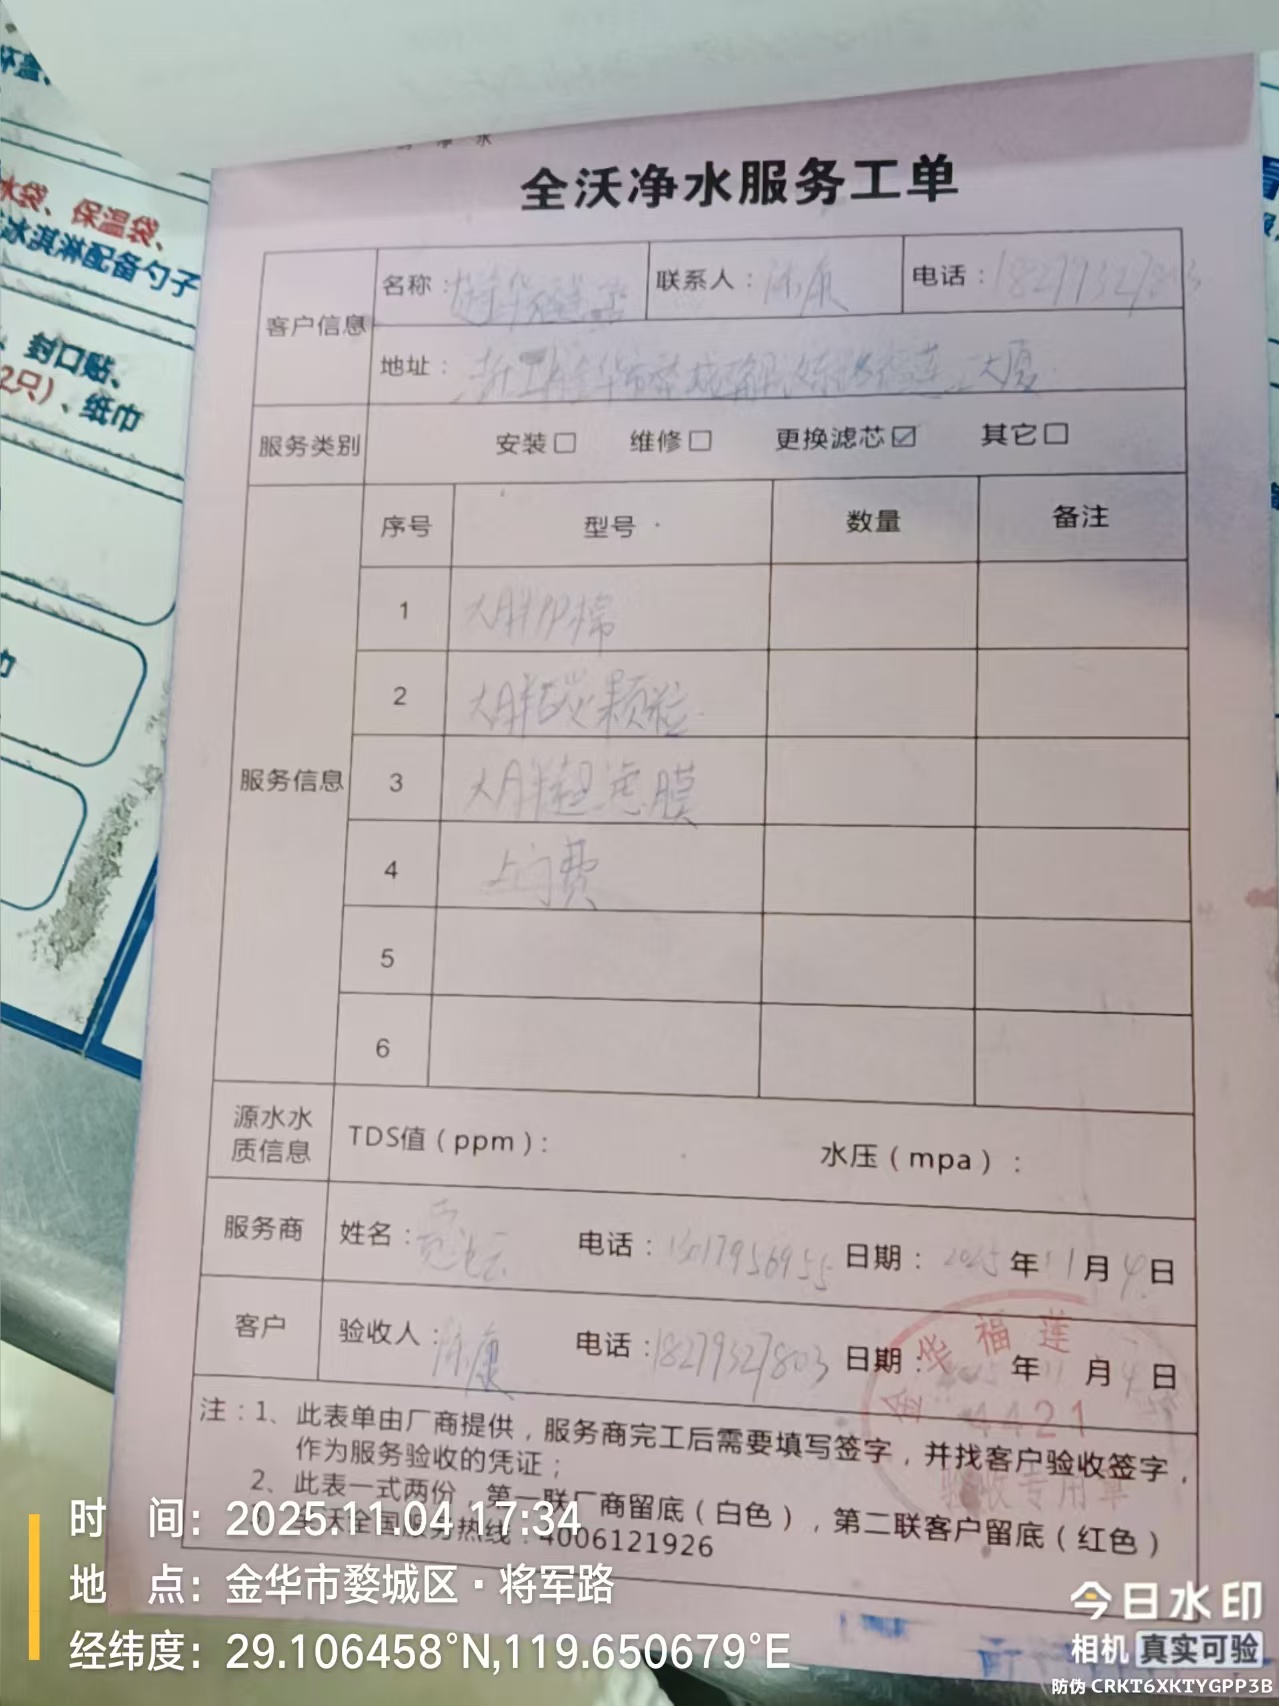 杯盖、
冰袋、保温袋、
冰淇淋配备勺子
封口贴、
2只)、纸巾
净水
全沃净水服务工单
客户信息
名称：
联系人：
电话：18279327803
地址：
大厦
服务类别
安装□ 维修□ 更换滤芯☑ 其它□
服务信息
序号 型号 数量 备注
1 大胖PP棉
2 大胖碳颗粒
3 大胖超滤膜
4 上门费
5
6
源水水质信息
TDS值（ppm）： 水压（mpa）：
服务商 姓名： 电话：15017956955 日期：2025年11月4日
客户 验收人： 电话：18279327803 日期：2025年11月4日
金华福莲
4421
验收专用章
注：1、此表单由厂商提供，服务商完工后需要填写签字，并找客户验收签字，
作为服务验收的凭证；
2、此表一式两份，第一联厂商留底（白色），第二联客户留底（红色）
3、全沃全国服务热线：4006121926
时 间：2025.11.04 17:34
地 点：金华市婺城区·将军路
经纬度：29.106458°N,119.650679°E
今日水印
相机 真实可验
防伪 CRKT6XKTYGPP3B